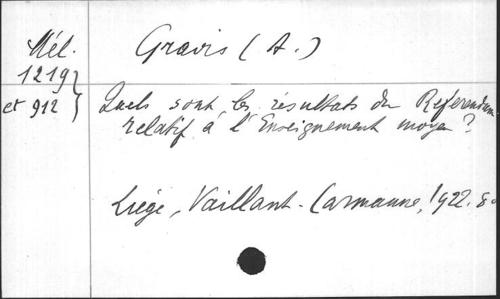 Mél. 1219
et 912
Gravis (A.)
Quels sont les résultats du Referendum
relatif à l'Enseignement moyen?
Liège, Vaillant-Carmanne, 1922. 8°